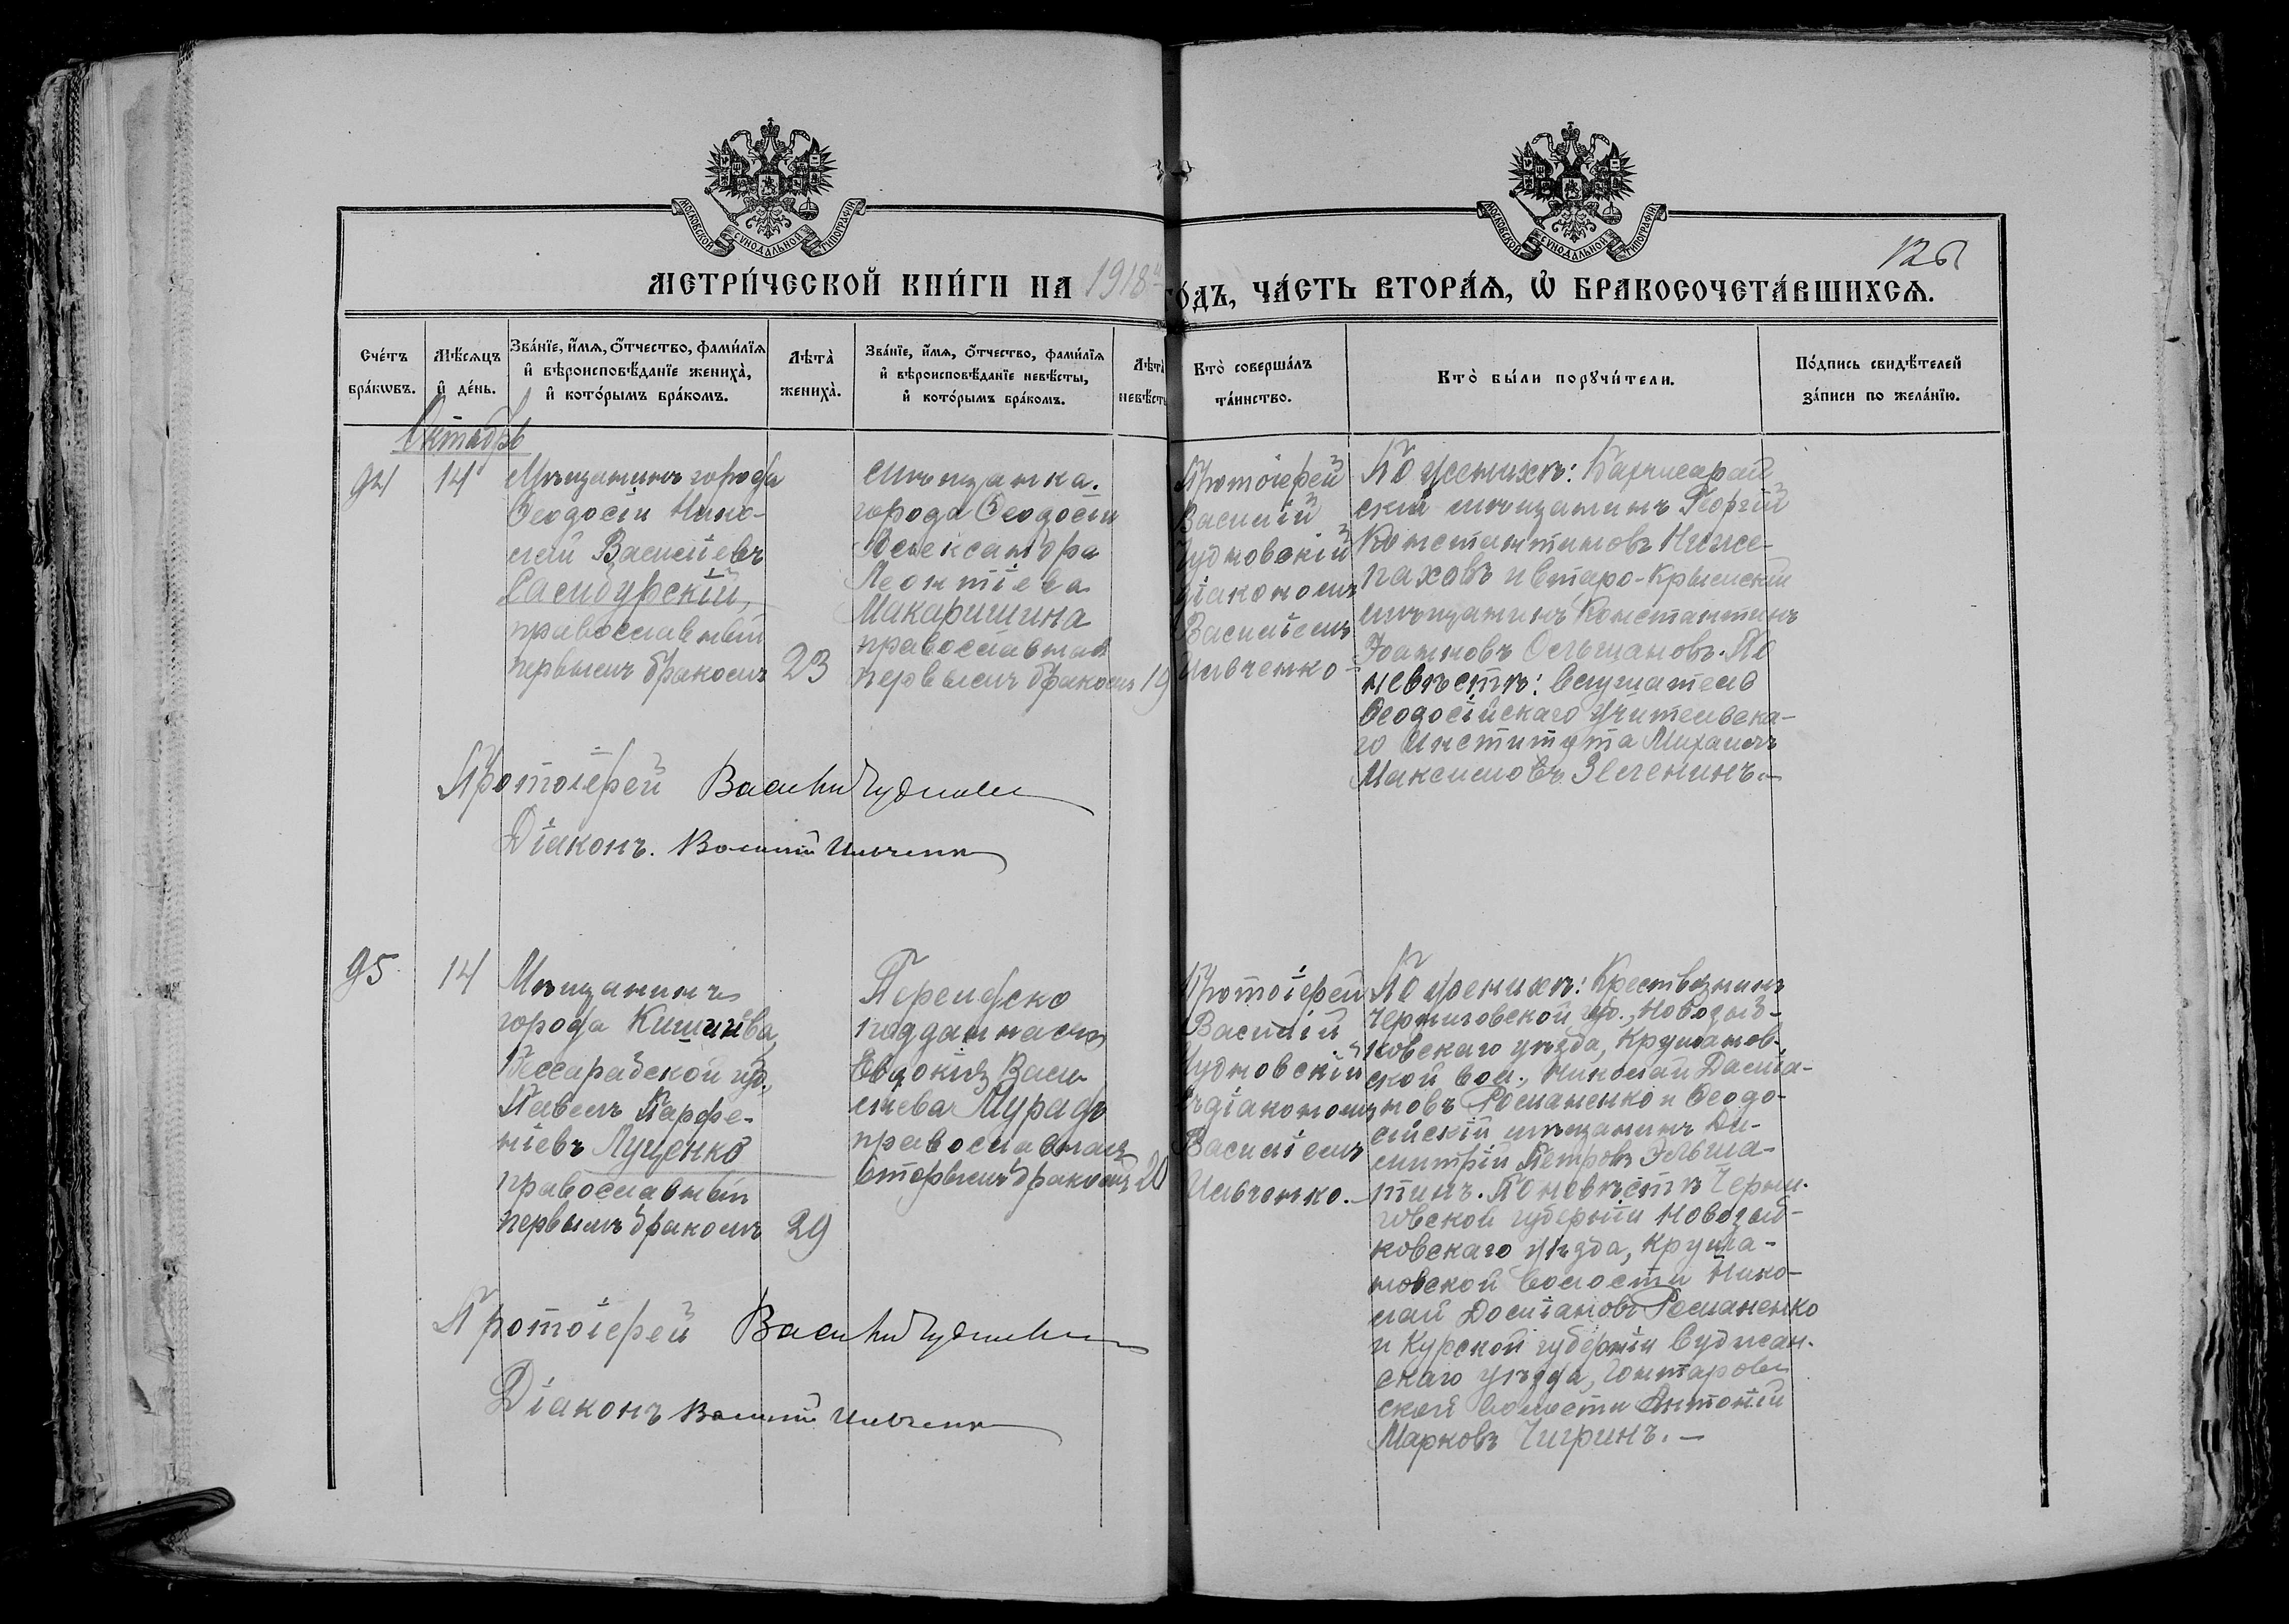 МОСКОВСКОЙ СѴНОДАЛЬНОЙ ТИПОГРАФІИ
МОСКОВСКОЙ СѴНОДАЛЬНОЙ ТИПОГРАФІИ
126
МЕТРИ́ЧЕСКОЙ КНИ́ГИ НА 1918й ГО́ДЪ, ЧА́СТЬ ВТОРА́Ѧ, Ѡ҆ БРАКОСОЧЕТА́ВШИХСѦ.
Счётъ бра́кѡвъ.
Мѣ́сѧцъ и҆ де́нь.
Зва́нїе, и҆́мѧ, ѻ҆́тчество, фами́лїѧ
и҆ вѣроисповѣ́данїе жениха̀,
и҆ кото́рымъ бра́комъ.
Лѣта̀ жениха̀.
Зва́нїе, и҆́мѧ, ѻ҆́тчество, фами́лїѧ
и҆ вѣроисповѣ́данїе невѣ́сты,
и҆ кото́рымъ бра́комъ.
Лѣта̀ невѣ́сты
Кто̀ соверша́лъ та́инство.
Кто̀ бы́ли порꙋчи́тели.
По́дпись свидѣ́телей за́писи по жела́нїю.
Октябрь
94
14
Мѣщанинъ города
Ѳеодосіи Нико-
лай Васильевъ
Самбурскій,
православный
первымъ бракомъ
23
Мѣщанка
города Ѳеодосіи
Александра
Леонтіева
Макаришина
православная
первымъ бракомъ
19
Протоіерей
Василій
Чудновскій
діакономъ
Василіемъ
Ильченко
По женихѣ: Бахчисарай
скій мѣщанинъ Георгій
Константиновъ
и Старо-Крымскій
мѣщанинъ Константинъ
Іоанновъ По
невѣстѣ: Слушатель
Ѳеодосійскаго Учительска-
го Института Михаилъ
Максимовъ Зеленинъ.
Протоіерей Василій Чудновскій
Діаконъ. Василій Ильченко
95
14
Мѣщанинъ
города Кишинева,
Бессарабской губ.,
Павелъ Парфе-
ніевъ Луценко
православный
первымъ бракомъ
29
Персидско
подданная
Евдокія Васи-
льева Мурадъ
православная
вторымъ бракомъ
20
Протоіерей
Василій
Чудновскій
съ діакономъ
Василіемъ
Ильченко.
По женихѣ: Крестьянинъ
Черниговской губ., Новозыб-
ковскаго уѣзда,
ской вол., Николай Даміа-
новъ Романенко и Ѳеодо-
сійскій мѣщанинъ Ди-
митрій Петровъ
По невѣстѣ Черни-
говской губерніи Новозыб-
ковскаго уѣзда,
новской волости Нико-
лай Даміановъ Романенко
и Курской губерніи Суджан-
скаго уѣзда,
ской волости Антоній
Марковъ Чигринъ. —
Протоіерей Василій Чудновскій
Діаконъ Василій Ильченко